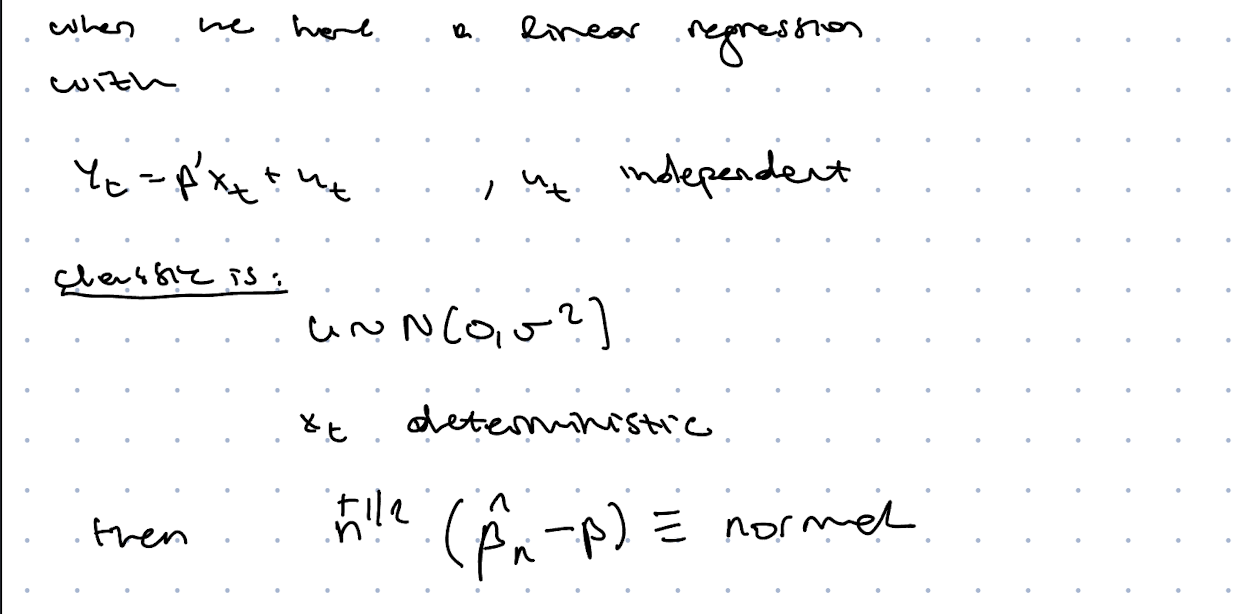 when we have a linear regression
with
Yₜ = β'xₜ + uₜ , uₜ independent
classic is:
u ~ N(0, σ²)
xₜ deterministic
then n^{+1/2} (β̂ₙ - β) ≡ normal